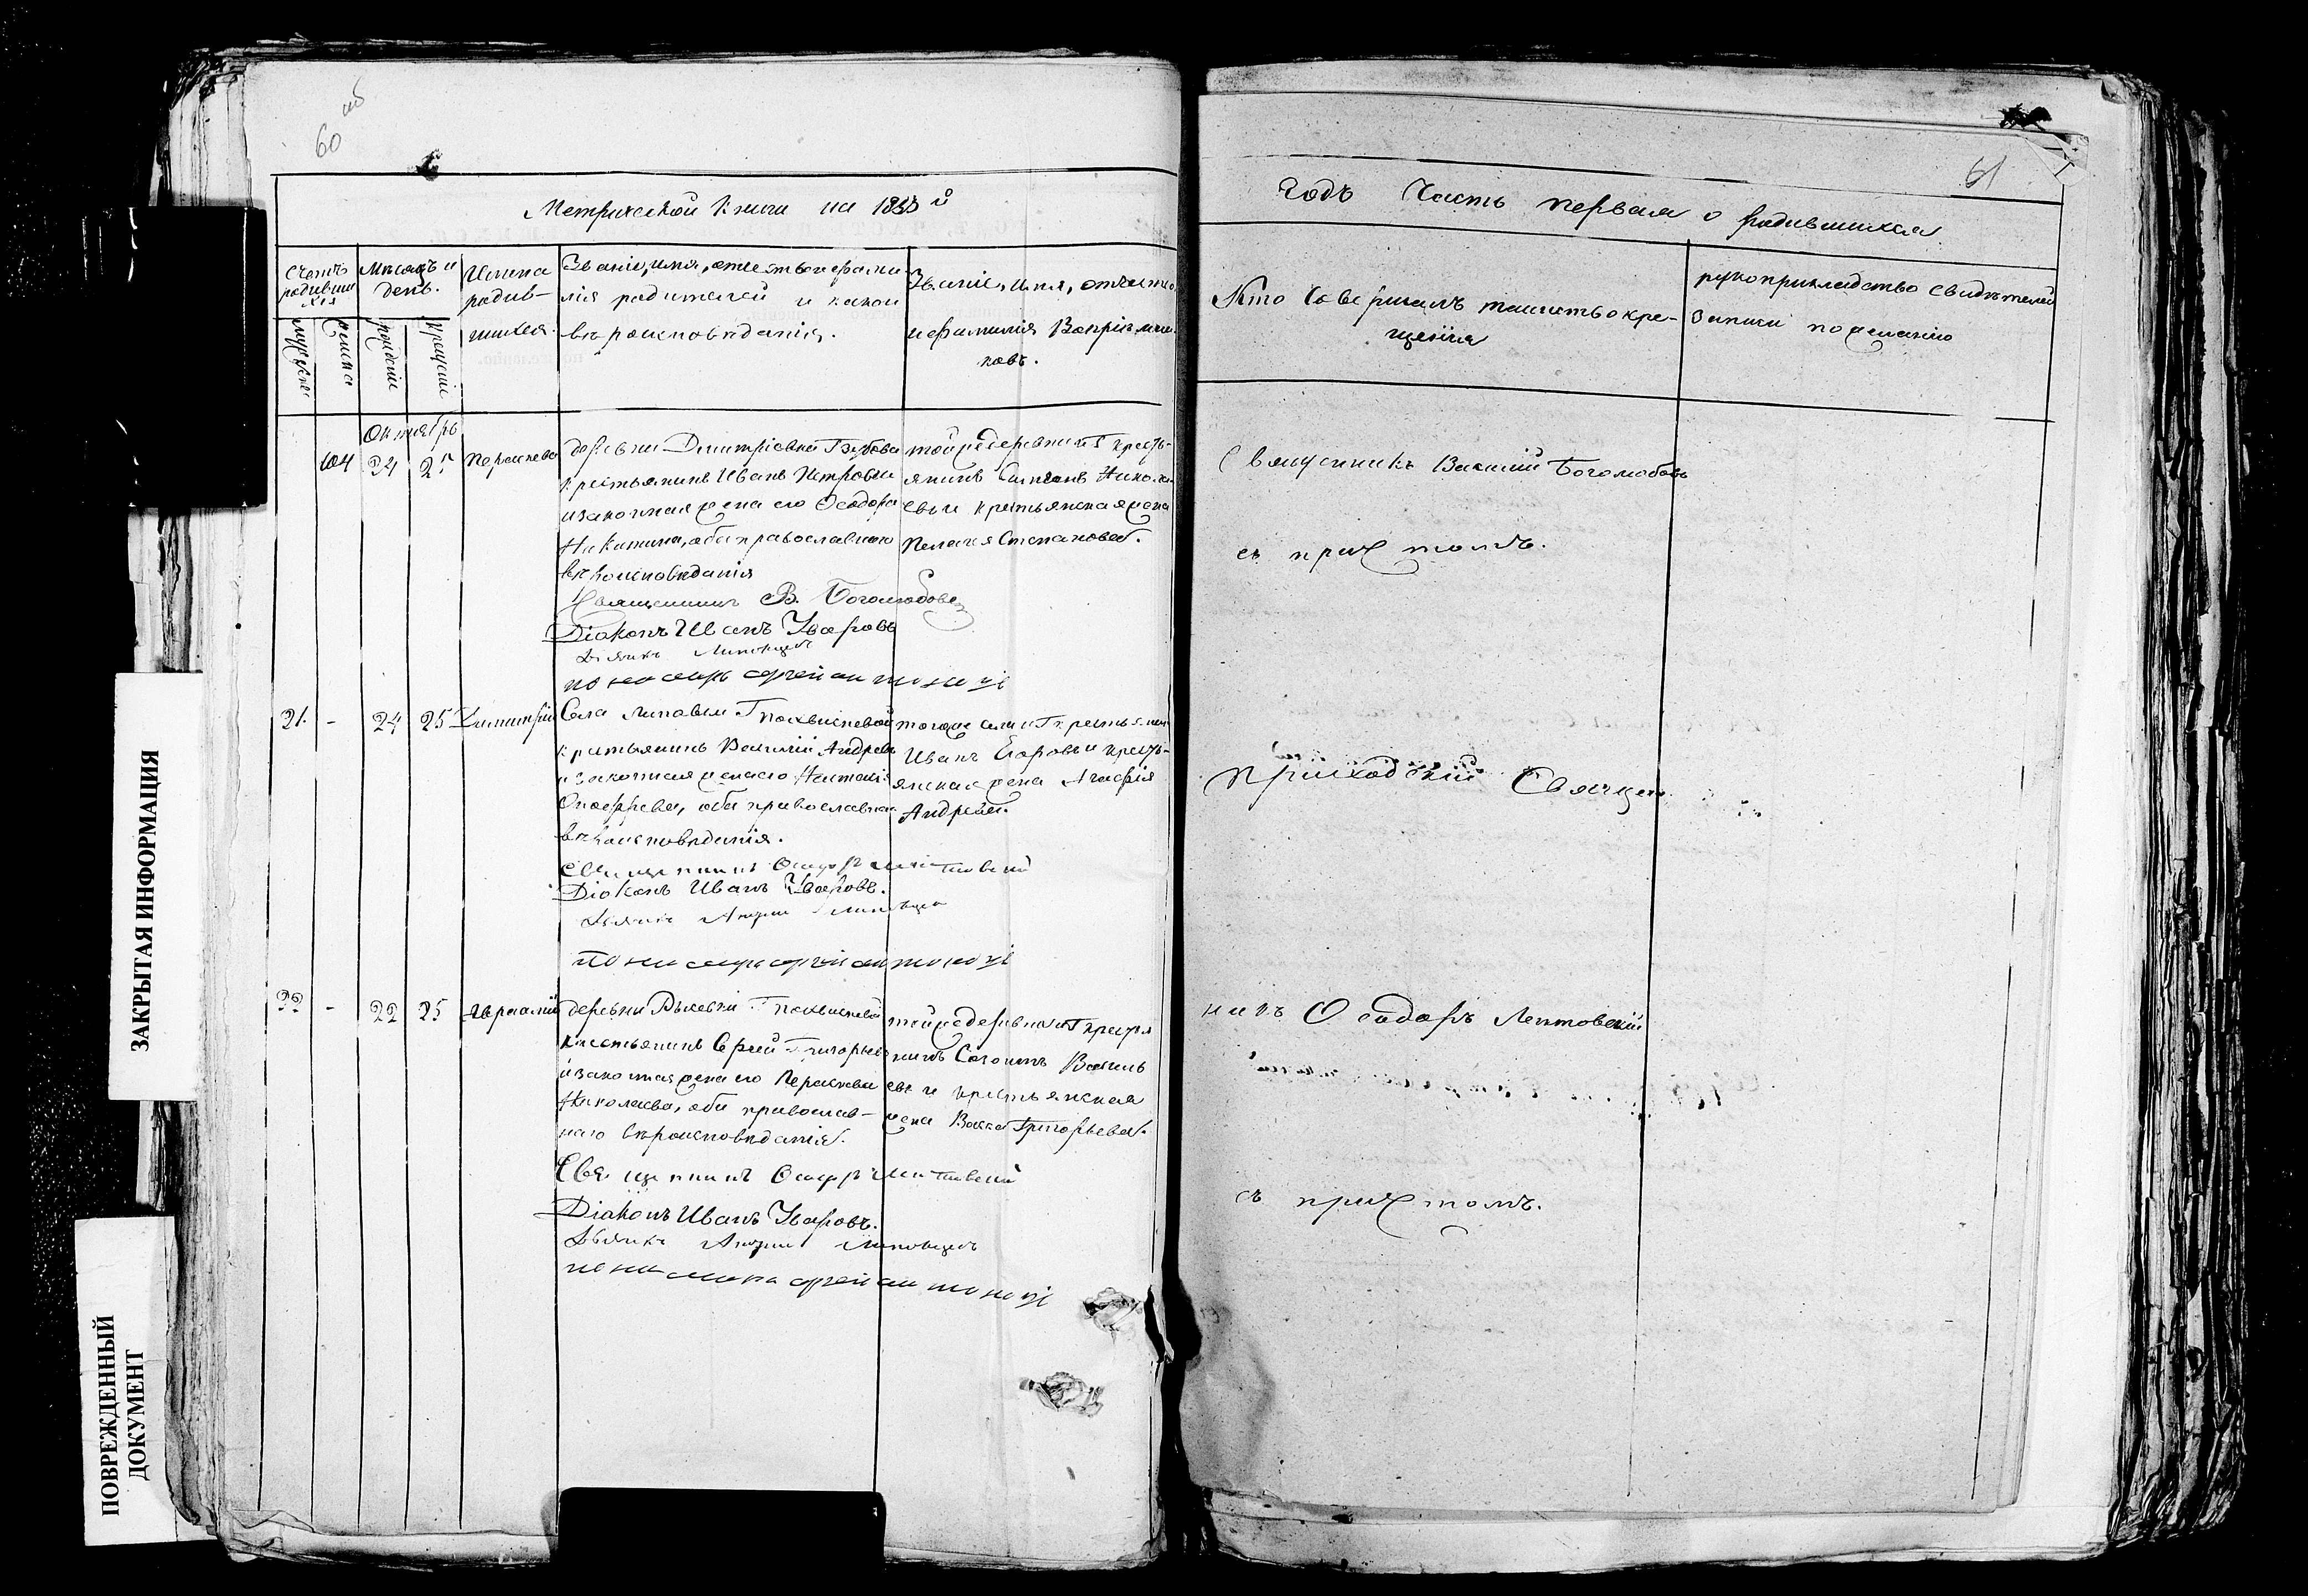 60 об
Метрической книги на 1838й
Счетъ родивши хся
Мѣсяцъ и день.
Имена родив-
шихся.
Званіе, имя, отчество и фами
лія родителей и какои
вѣроисповѣданія.
Званіе, имя, отчество
и фамилія Воспріемни
ковъ.
мужеска
женска
рожденіе
крещеніе
Октябрь
104 24 25 Параскева
деревни Дмитріевки Глѣбова
крестьянинъ Иванъ Петровъ
и законная жена его Ѳеодора
Никитина, оба православнаго
вѣроисповѣданія
той же деревни Г. кресть-
янинъ Симеонъ Никола
евъ и крестьянская жена
Пелагея Степанова.
Священникъ В. Боголюбовъ
Діаконъ Иванъ Уваровъ
Дьячикъ Липовцевъ
пономарь
21. - 24 25 Димитрій
Села Липовки Г. Похвиснева
крестьянинъ Василій Андреевъ
и законная жена его Наталія
Онофрева, оба православнаго
вѣроисповѣданія.
того же села Г. крестьянин
Иванъ Егоровъ и кресть-
янская жена Агафія
Андреева.
Священникъ Ѳеодоръ Лентовскій
Діаконъ Иванъ Уваровъ.
Дьячикъ Андрей Липовцевъ
пономарь
22 - 22 25 Авраамій
деревни Г. Похвиснева
крестьянинъ Сергей Григорьевъ
и законная жена его Параскева
Николаева, оба православ-
наго вѣроисповѣданія.
той же деревни Г. крестья
нинъ Василь
евъ и крестьянская
жена Васса Григорьева.
Священникъ Ѳеодоръ Лентовскій
Діаконъ Иванъ Уваровъ.
Дьячикъ Андрей Липовцевъ
пономарь
61
Годъ Часть первая о родившихся
Кто совершалъ таинство кре-
щенія
рукоприкладство свидѣтелей
записи по желанію
Священникъ Василій Боголюбовъ
съ причтомъ.
Приходскій Священ
никъ Ѳеодоръ Лентовскій
съ причтомъ.
ЗАКРЫТАЯ ИНФОРМАЦИЯ
ПОВРЕЖДЕННЫЙ
ДОКУМЕНТ